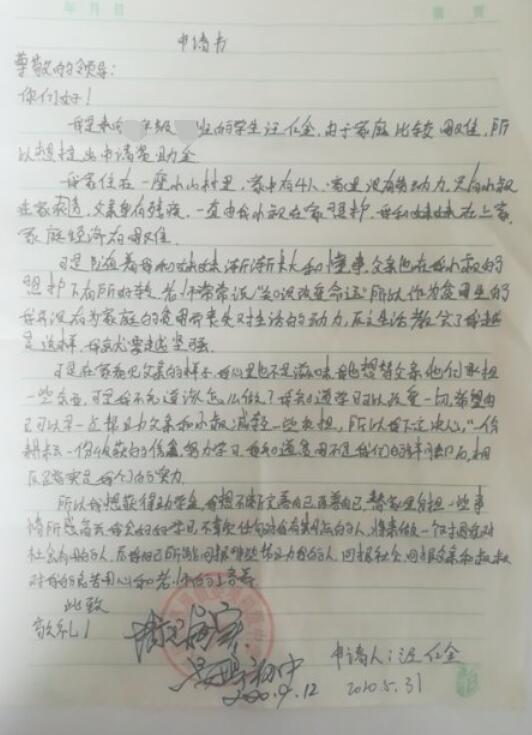 年 月 日
申请书
尊敬的领导：
你们好！
我是来自 年级 班的学生汪仁全，由于家庭比较困难，所
以想提出申请资助金
我家住在一座小山村里，家中有4人，家里没有劳动力，只有小叔
在家 父亲身有残疾，一直由我小叔在家照护，我和妹妹在上学，
家庭经济有困难。
可是随着我和妹妹渐渐长大和懂事父亲也在我小叔的
照护下有所好转，老师常常说"知识改变命运"所以作为贫困生的
我并没有为家庭的贫困而丧失对生活的动力，反之生活教会了我越
是这样，我就要越坚强。
可是在家看见父亲的样子，我心里也不是滋味，我也想替父亲他们承担
一些东西，可是我不知道该怎么做？我知道学习可以改变一切，希望自
己可以尽一点帮助为父亲和小叔减轻一些负担，所以我下定决心，"一份
耕耘一份收获的信念，努力学习，我知道贫困不是我们的绊脚石，相
反它 是我们的动力。
所以我想获得助学金，我想不断完善自己改善自己，替家里分担一些事
情所 我会好好学习，不辜负任何对我有期盼的人，将来做一个对国家对
社会有用的人，尽我自己所能回报那些帮助我的人，回报社会，回报父亲和叔叔
对我的良苦用心和老师的培养。
此致
敬礼！
情况属实。
初中
2020.9.12
申请人：汪仁全
2020.5.31